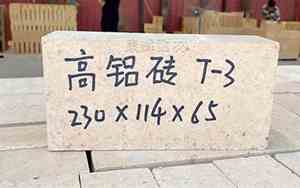 高铝砖 T-3
230×114×65